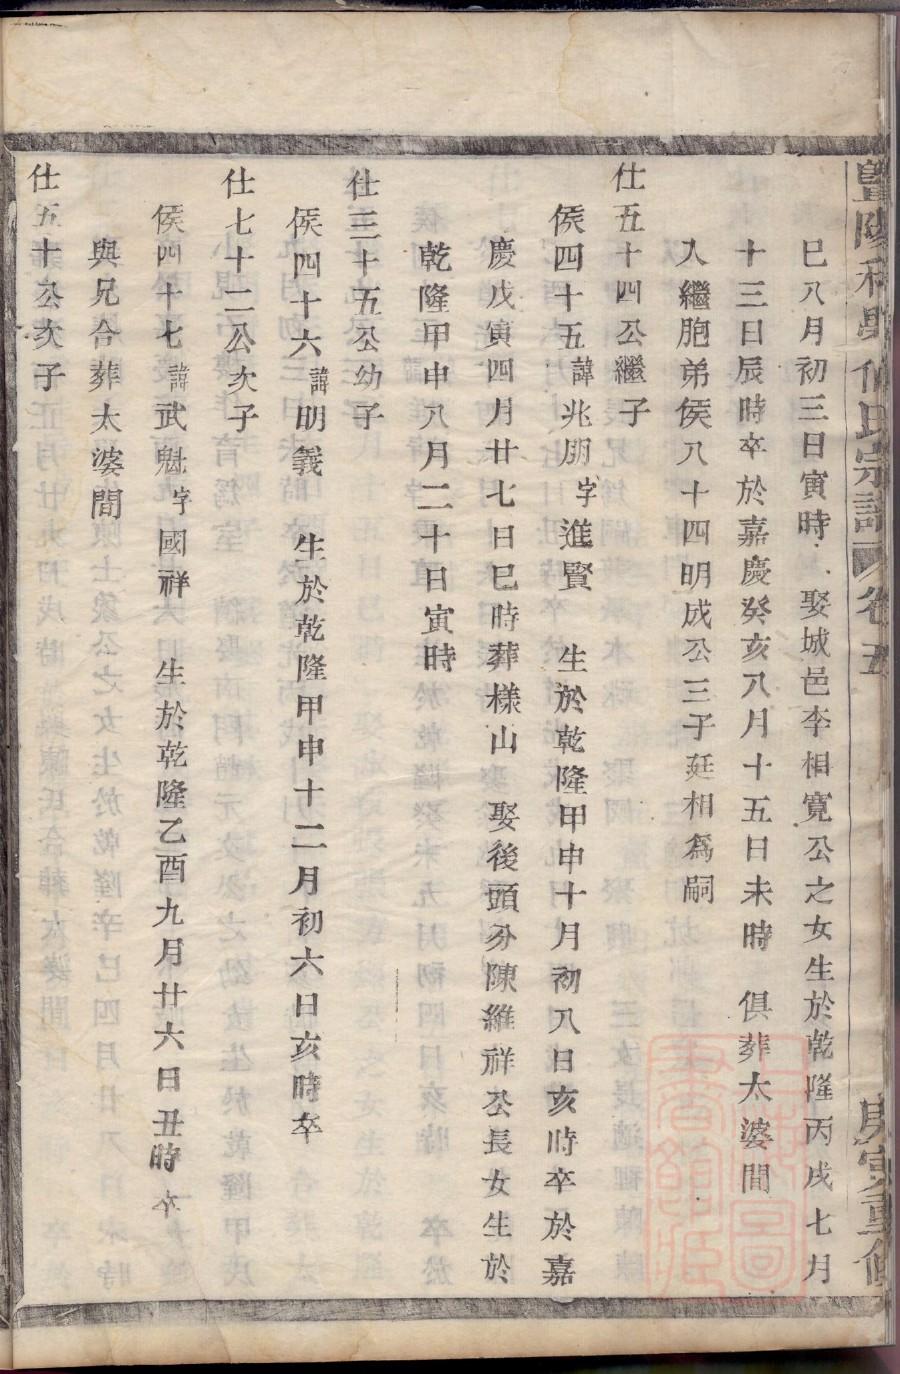 巳八月初三日寅時 娶城邑李相寬公之女生於乾隆丙戌七月
十三日辰時卒於嘉慶癸亥八月十五日未時 俱葬太婆間
入繼胞弟侯八十四明成公三子廷相爲嗣
仕五十四公繼子
侯四十五諱兆朋字進賢 生於乾隆甲申十月初八日亥時卒於嘉
慶戊寅四月廿七日巳時葬樣山 娶後頭分陳維祥公長女生於
乾隆甲申八月二十日寅時
仕三十五公幼子
侯四十六諱明義 生於乾隆甲申十二月初六日亥時卒
仕七十二公次子
侯四十七諱武魁字國祥 生於乾隆乙酉九月廿六日丑時 卒
與兄合葬太婆間
仕五十公次子
暨陽 氏宗譜 卷五 庚寅重修